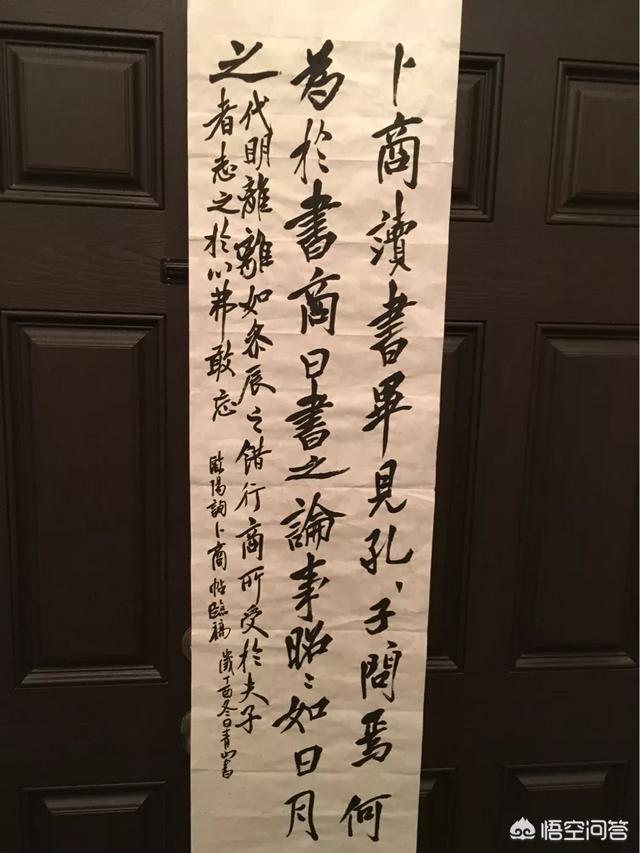 卜商讀書畢見孔、子問焉何
為於書商曰書之論事昭〻如日月
之代明離離如參辰之錯行商所受於夫子
者志之於心弗敢忘 歐陽詢卜商帖臨稿 歲丁酉冬日青山書
悟空问答